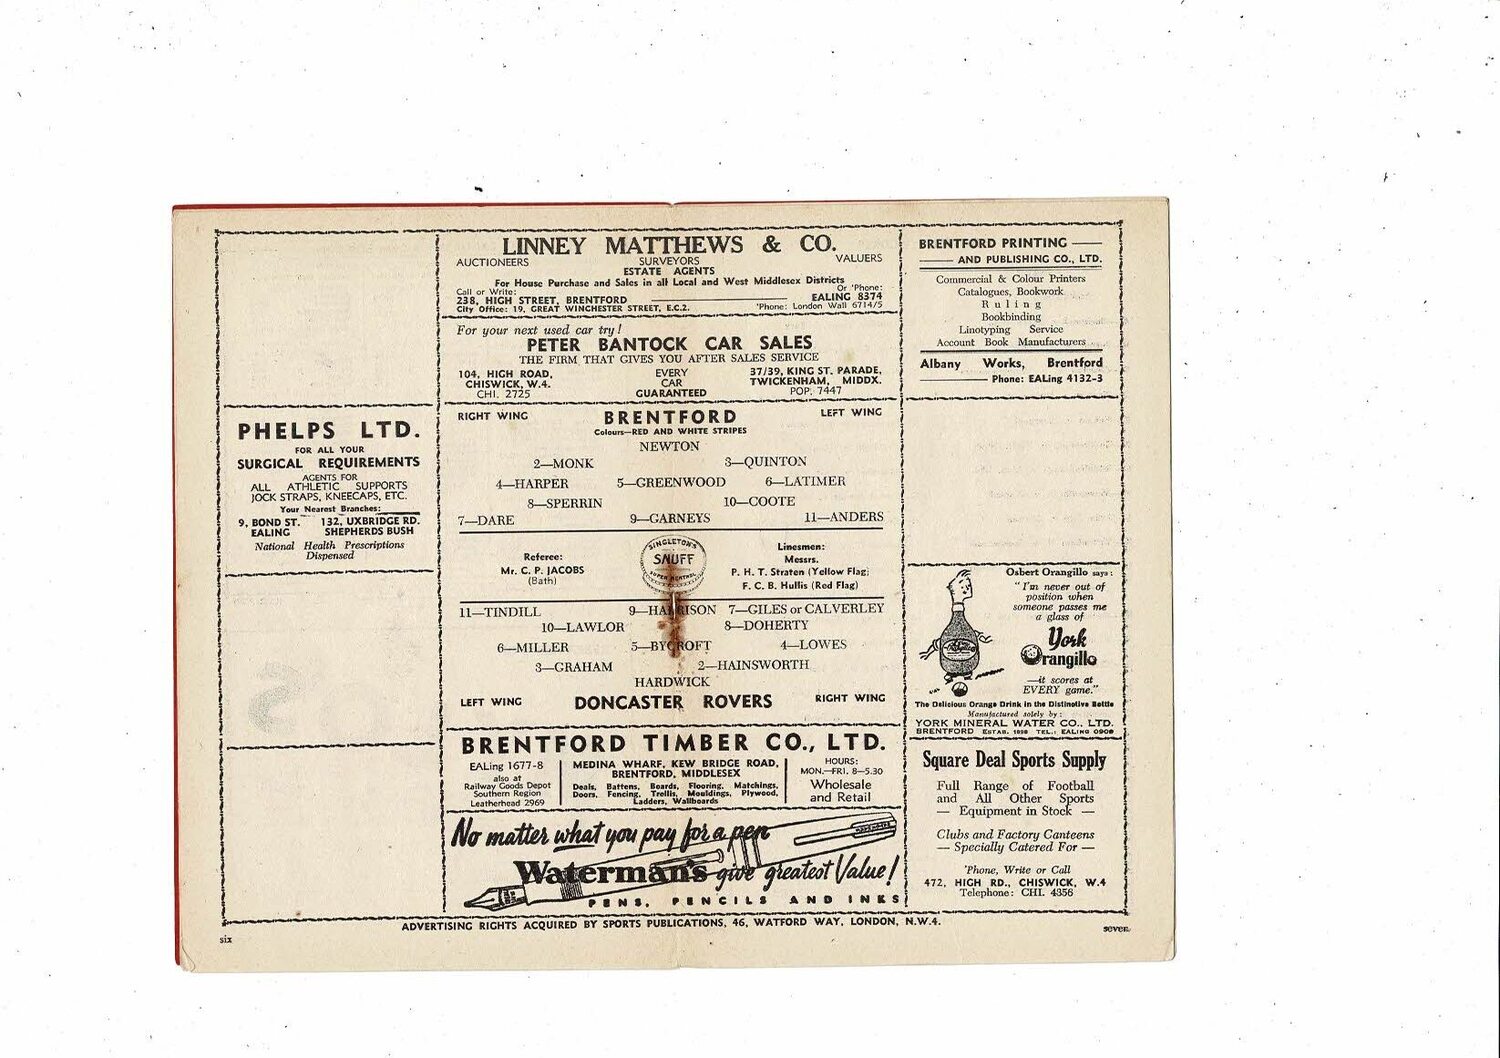 LINNEY MATTHEWS & CO.
AUCTIONEERS SURVEYORS VALUERS
ESTATE AGENTS
For House Purchase and Sales in all Local and West Middlesex Districts
Call or Write: Or 'Phone:
238, HIGH STREET, BRENTFORD EALING 8374
City Office: 19, GREAT WINCHESTER STREET, E.C.2. 'Phone: London Wall 6714/5
For your next used car try!
PETER BANTOCK CAR SALES
THE FIRM THAT GIVES YOU AFTER SALES SERVICE
104, HIGH ROAD, EVERY 37/39, KING ST. PARADE,
CHISWICK, W.4. CAR TWICKENHAM, MIDDX.
CHI. 2725 GUARANTEED POP. 7447
BRENTFORD PRINTING
AND PUBLISHING CO., LTD.
Commercial & Colour Printers
Catalogues, Bookwork
Ruling
Bookbinding
Linotyping Service
Account Book Manufacturers
Albany Works, Brentford
Phone: EALing 4132-3
PHELPS LTD.
FOR ALL YOUR
SURGICAL REQUIREMENTS
AGENTS FOR
ALL ATHLETIC SUPPORTS
JOCK STRAPS, KNEECAPS, ETC.
Your Nearest Branches:
9, BOND ST. 132, UXBRIDGE RD.
EALING SHEPHERDS BUSH
National Health Prescriptions
Dispensed
RIGHT WING BRENTFORD LEFT WING
Colours—RED AND WHITE STRIPES
NEWTON
2—MONK 3—QUINTON
4—HARPER 5—GREENWOOD 6—LATIMER
8—SPERRIN 10—COOTE
7—DARE 9—GARNEYS 11—ANDERS
Referee:
Mr. C. P. JACOBS
(Bath)
SINGLETON'S
SNUFF
SUPER MENTHOL
Linesmen:
Messrs.
P. H. T. Straten (Yellow Flag)
F. C. B. Hullis (Red Flag)
11—TINDILL 9—HARRISON 7—GILES or CALVERLEY
10—LAWLOR 8—DOHERTY
6—MILLER 5—BYCROFT 4—LOWES
3—GRAHAM 2—HAINSWORTH
HARDWICK
LEFT WING DONCASTER ROVERS RIGHT WING
Osbert Orangillo says:
"I'm never out of
position when
someone passes me
a glass of
York
Orangillo
—it scores at
EVERY game."
The Delicious Orange Drink in the Distinctive Bottle
Manufactured solely by:
YORK MINERAL WATER CO., LTD.
BRENTFORD ESTAB. 1898 TEL.: EALING 0909
BRENTFORD TIMBER CO., LTD.
EALing 1677-8
also at
Railway Goods Depot
Southern Region
Leatherhead 2969
MEDINA WHARF, KEW BRIDGE ROAD,
BRENTFORD, MIDDLESEX
Deals, Battens, Boards, Flooring, Matchings,
Doors, Fencing, Trellis, Mouldings, Plywood,
Ladders, Wallboards
HOURS:
MON.—FRI. 8—5.30
Wholesale
and Retail
Square Deal Sports Supply
Full Range of Football
and All Other Sports
— Equipment in Stock —
Clubs and Factory Canteens
— Specially Catered For —
'Phone, Write or Call
472, HIGH RD., CHISWICK, W.4
Telephone: CHI. 4356
No matter what you pay for a pen
Waterman's give greatest Value!
PENS, PENCILS AND INKS
ADVERTISING RIGHTS ACQUIRED BY SPORTS PUBLICATIONS, 46, WATFORD WAY, LONDON, N.W.4.
six
seven